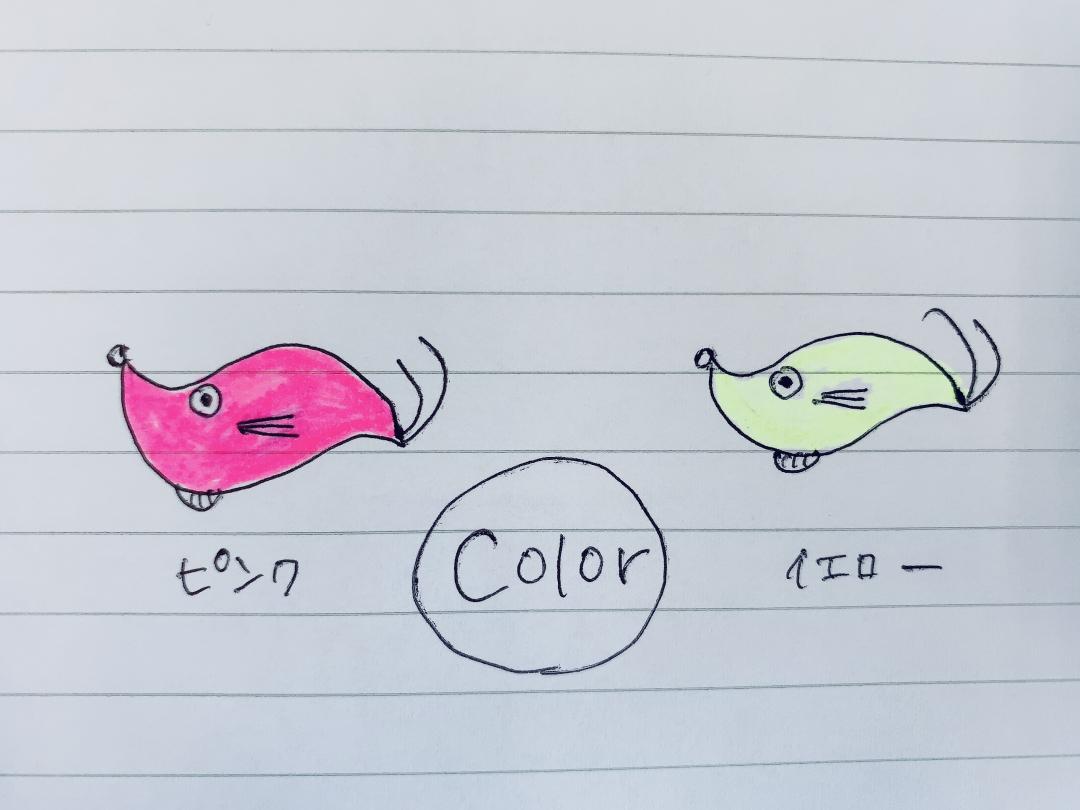 ピンク
Color
イエロー